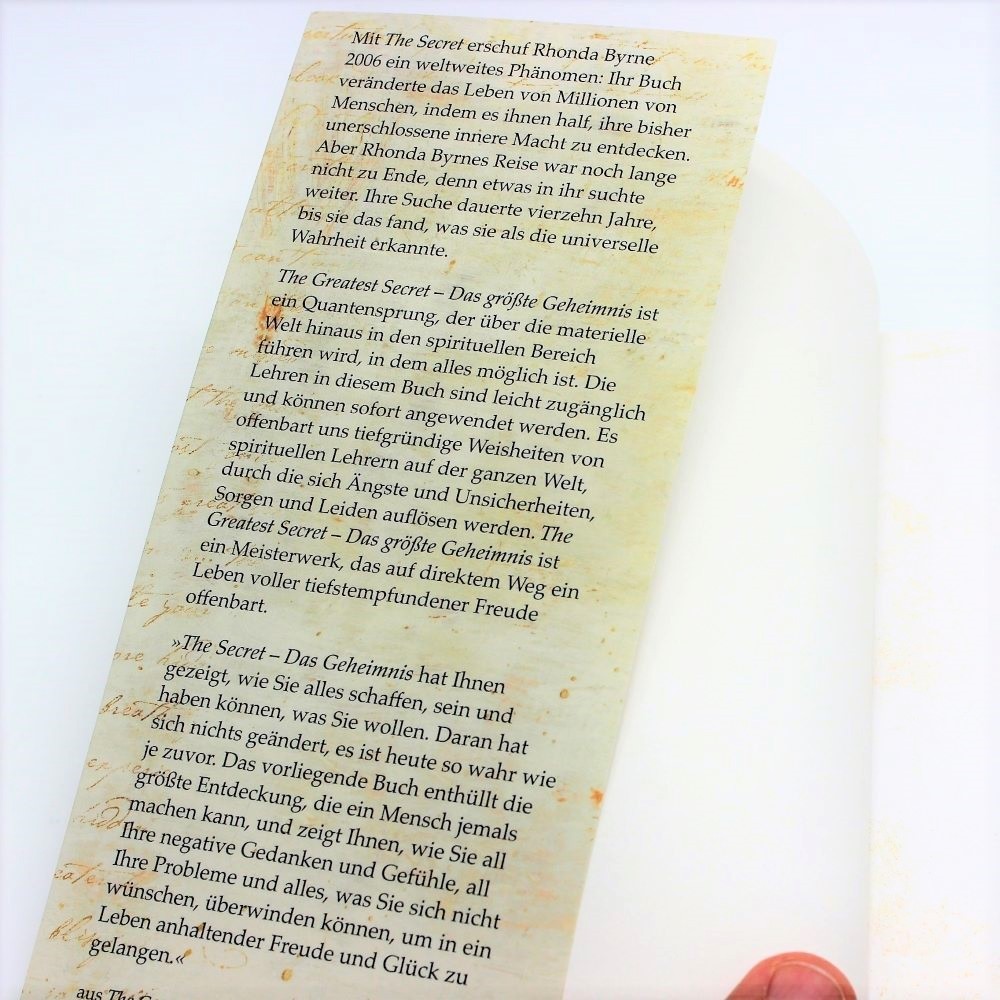 Mit The Secret erschuf Rhonda Byrne
2006 ein weltweites Phänomen: Ihr Buch
veränderte das Leben von Millionen von
Menschen, indem es ihnen half, ihre bisher
unerschlossene innere Macht zu entdecken.
Aber Rhonda Byrnes Reise war noch lange
nicht zu Ende, denn etwas in ihr suchte
weiter. Ihre Suche dauerte vierzehn Jahre,
bis sie das fand, was sie als die universelle
Wahrheit erkannte.
The Greatest Secret – Das größte Geheimnis ist
ein Quantensprung, der über die materielle
Welt hinaus in den spirituellen Bereich
führen wird, in dem alles möglich ist. Die
Lehren in diesem Buch sind leicht zugänglich
und können sofort angewendet werden. Es
offenbart uns tiefgründige Weisheiten von
spirituellen Lehrern auf der ganzen Welt,
durch die sich Ängste und Unsicherheiten,
Sorgen und Leiden auflösen werden. The
Greatest Secret – Das größte Geheimnis ist
ein Meisterwerk, das auf direktem Weg ein
Leben voller tiefstempfundener Freude
offenbart.
»The Secret – Das Geheimnis hat Ihnen
gezeigt, wie Sie alles schaffen, sein und
haben können, was Sie wollen. Daran hat
sich nichts geändert, es ist heute so wahr wie
je zuvor. Das vorliegende Buch enthüllt die
größte Entdeckung, die ein Mensch jemals
machen kann, und zeigt Ihnen, wie Sie all
Ihre negative Gedanken und Gefühle, all
Ihre Probleme und alles, was Sie sich nicht
wünschen, überwinden können, um in ein
Leben anhaltender Freude und Glück zu
gelangen.«
aus The